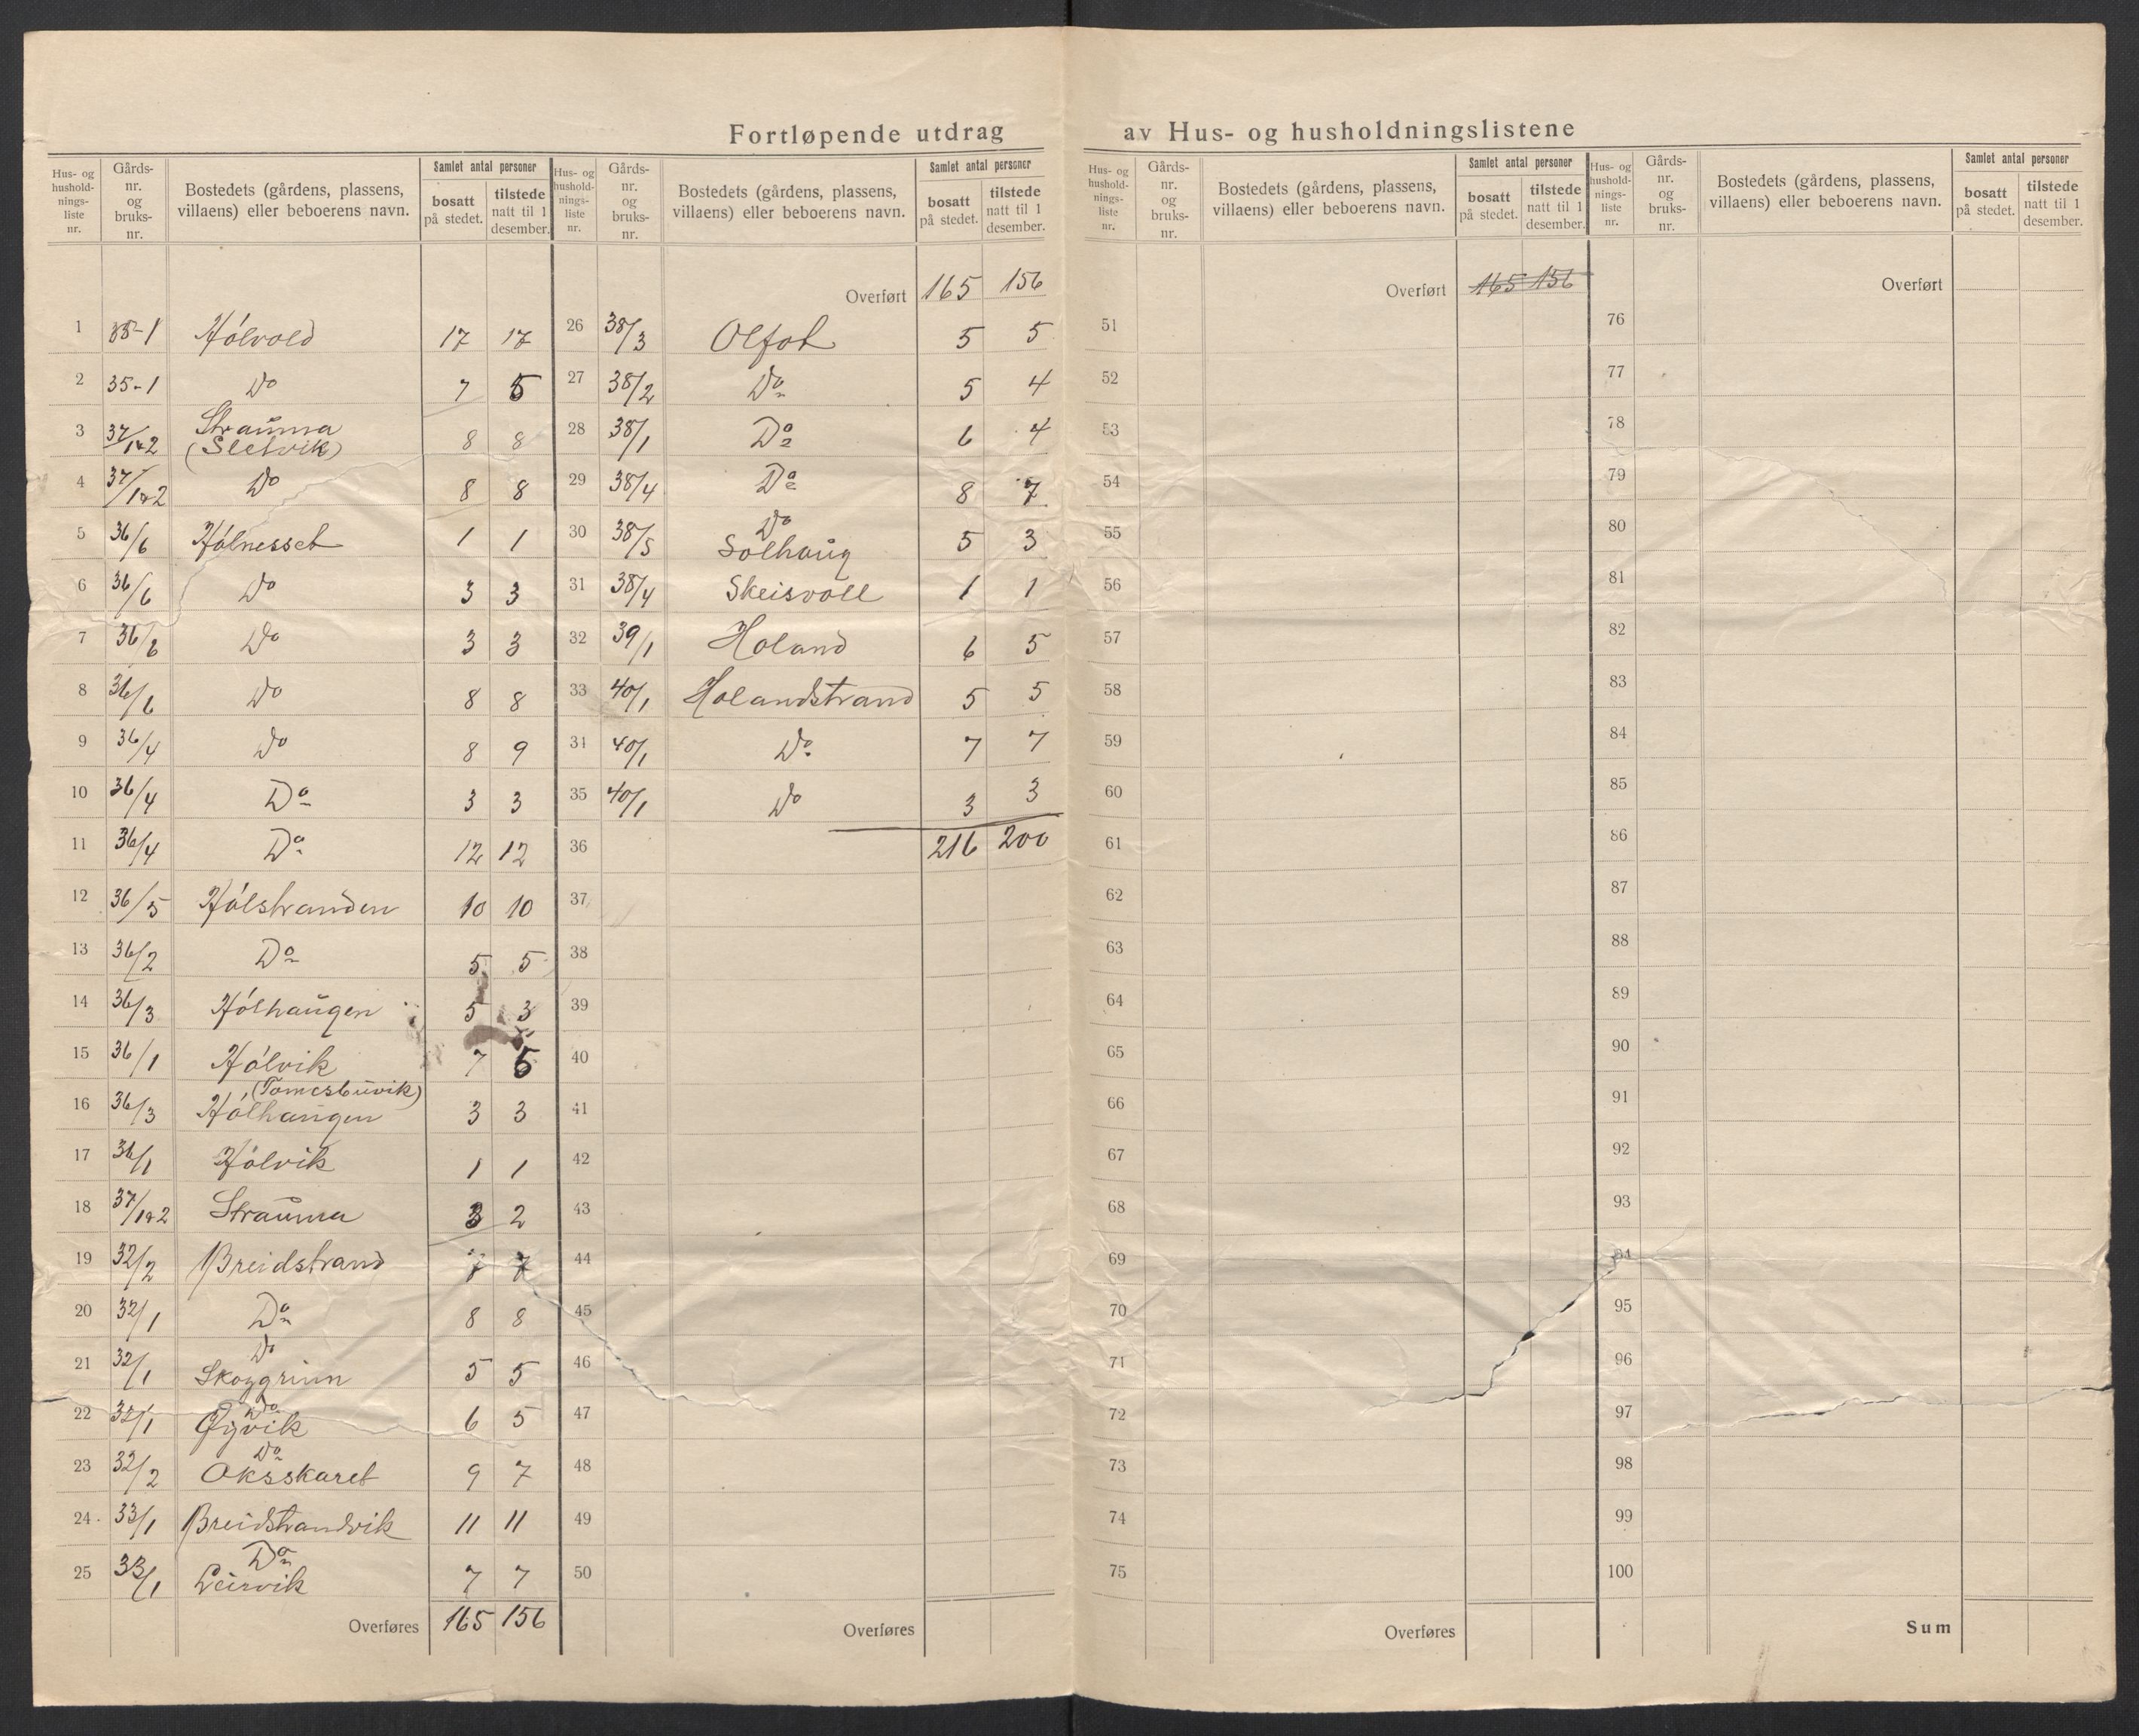 Fortløpende utdrag av Hus- og husholdningslistene
Hus- og hushold-nings-liste nr. | Gårds-nr. og bruks-nr. | Bostedets (gårdens, plassens, villaens) eller beboerens navn. | Samlet antal personer | bosatt på stedet. | tilstede natt til 1 desember.
1 | 35-1 | Hólvold | 17 | 17
2 | 35-1 | Do | 7 | 5
3 | 37/1&2 | Strauma (Sletvik) | 8 | 8
4 | 37/1&2 | Do | 8 | 8
5 | 36/6 | Hólnesset | 1 | 1
6 | 36/6 | Do | 3 | 3
7 | 36/6 | Do | 3 | 3
8 | 36/6 | Do | 8 | 8
9 | 36/4 | Do | 8 | 9
10 | 36/4 | Do | 3 | 3
11 | 36/4 | Do | 12 | 12
12 | 36/5 | Hólstranden | 10 | 10
13 | 36/2 | Do | 5 | 5
14 | 36/3 | Hólhaugen | 5 | 3
15 | 36/1 | Hólvik | 7 | 5
16 | 36/3 | Hólhaugen | 3 | 3
17 | 36/1 | Hólvik | 1 | 1
18 | 37/1&2 | Strauma | 3 | 2
19 | 32/2 | Breidstrand | 7 | 7
20 | 32/1 | Do | 8 | 8
21 | 32/1 | Do Skoggrunn | 5 | 5
22 | 32/1 | Do | 6 | 5
23 | 32/2 | Do Oksskaret | 9 | 7
24 | 33/1 | Breidstrandvik | 11 | 11
25 | 33/1 | Do Leirvik | 7 | 7
Overføres | 165 | 156
Hus- og hushold-nings-liste nr. | Gårds-nr. og bruks-nr. | Bostedets (gårdens, plassens, villaens) eller beboerens navn. | Samlet antal personer | bosatt på stedet. | tilstede natt til 1 desember.
Overført | 165 | 156
26 | 38/3 | Olfot | 5 | 5
27 | 38/2 | Do | 5 | 4
28 | 38/1 | Do | 6 | 4
29 | 38/4 | Do | 8 | 7
30 | 38/5 | Do Solhaug | 5 | 3
31 | 38/4 | Skeisvoll | 1 | 1
32 | 39/1 | Holand | 6 | 5
33 | 40/1 | Holandstrand | 5 | 5
34 | 40/1 | Do | 7 | 7
35 | 40/1 | Do | 3 | 3
36 | 216 | 200
37
38
39
40
41
42
43
44
45
46
47
48
49
50
Overføres
Hus- og hushold-nings-liste nr. | Gårds-nr. og bruks-nr. | Bostedets (gårdens, plassens, villaens) eller beboerens navn. | Samlet antal personer | bosatt på stedet. | tilstede natt til 1 desember.
Overført | 165 | 156
51
52
53
54
55
56
57
58
59
60
61
62
63
64
65
66
67
68
69
70
71
72
73
74
75
Overføres
Hus- og hushold-nings-liste nr. | Gårds-nr. og bruks-nr. | Bostedets (gårdens, plassens, villaens) eller beboerens navn. | Samlet antal personer | bosatt på stedet. | tilstede natt til 1 desember.
Overført
76
77
78
79
80
81
82
83
84
85
86
87
88
89
90
91
92
93
94
95
96
97
98
99
100
Sum